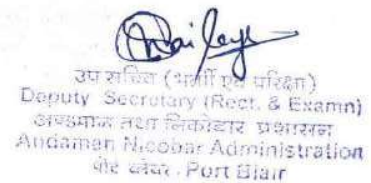 उप सचिव (भर्ती एवं परीक्षा)
Deputy Secretary (Rect. & Examn)
अण्डमान तथा निकोबार प्रशासन
Andaman Nicobar Administration
पोर्ट ब्लेयर, Port Blair